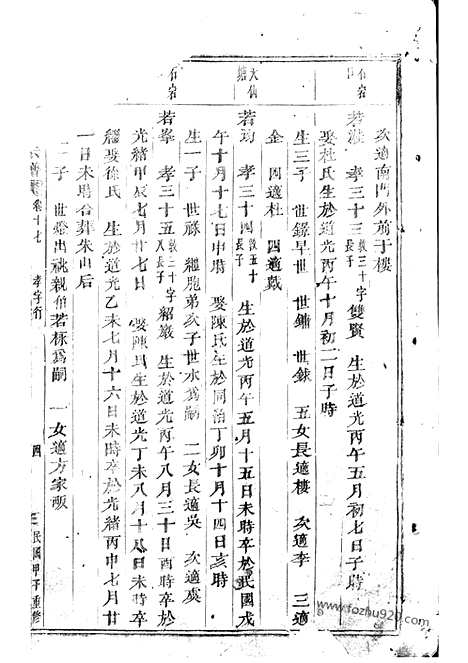 次適南門外前于樓
若 孝三十三 敦三十字雙賢 生於道光丙午五月初七日子時
長子
娶杜氏生於道光丙午十月初二日子時
生三子 世錄早世 世鏞 世銶 五女長適樓 次適李 三適
金 四適杜 四適戴
大仙
若 孝三十四 敦五十 生於道光丙午五月十五日未時卒於民國戊
長子
午十月十七日申時 娶陳氏生於同治丁卯十月十四日亥時
生一子 世祿 繼胞弟次子世水爲嗣 二女長適吳 次適虞
若峯 孝三十五 敦三十字紹巖 生於道光丙午八月三十日酉時卒於
長子
光緒甲辰七月廿七日 娶陳氏生於道光丁未八月十八日未時卒
繼娶徐氏 生於道光乙未七月十六日未時卒於光緒丙申七月廿
一日未時合葬朱山后
子 出祧親伯若 爲嗣 一女適方家畈
卷十七 孝字行 四 民國甲子重修
www.fozhu920.com